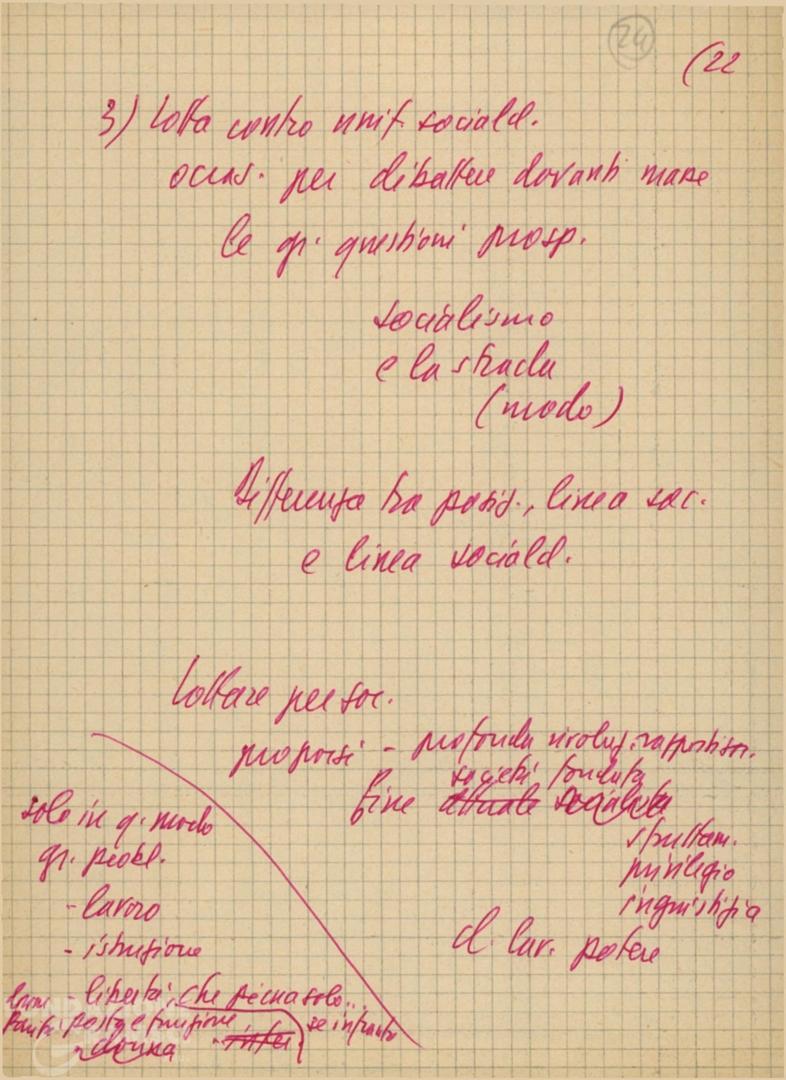 24
(22
3) Lotta contro unif. sociald.
occas. per dibattere davanti masse
le gr. questioni prosp.
socialismo
e la strada
(modo)
Differenza tra posiz., linea soc.
e linea sociald.
Lottare per soc.
proporsi - profonda rivoluz. rapporti soc.
società fondata
fine attuale società
sfruttam.
privilegio
ingiustizia
d. lav. potere
solo in q. modo
gr. probl.
- lavoro
- istruzione
- libertà, che
se infranto
posto e funzione
donna